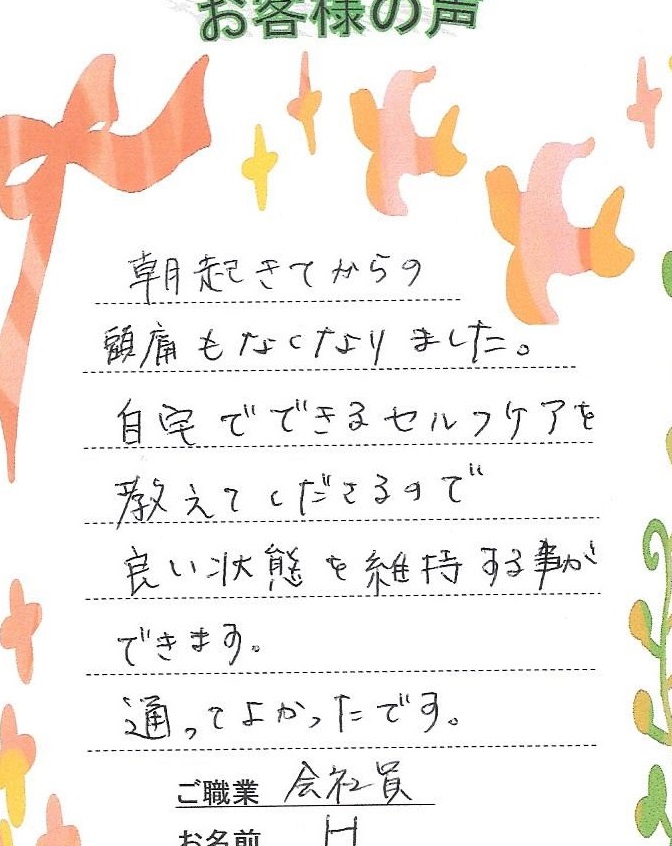 お客様の声
朝起きてからの
頭痛もなくなりました。
自宅でできるセルフケアを
教えてくださるので
良い状態を維持する事が
できます。
通ってよかったです。
ご職業 会社員
お名前 H